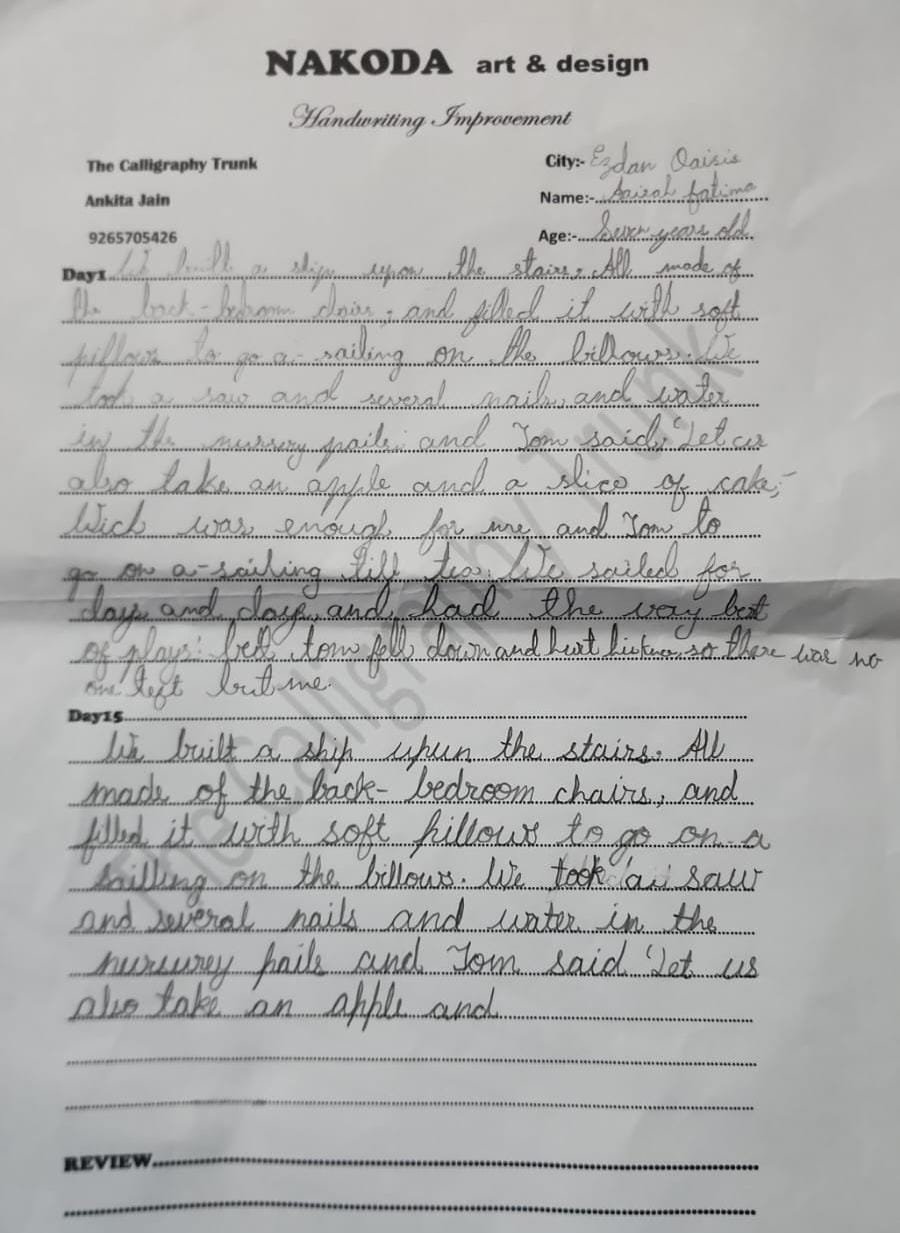 NAKODA art & design
Handwriting Improvement
The Calligraphy Trunk
City:- Ezdan Oaisis
Ankita Jain
Name:- Aairah fatima
9265705426
Age:- Seven years old
Day1 We built a ship upon the stairs. All made of
the back-bedroom chairs, and filled it with soft
pillows to go a-sailing on the billows. We
took a saw and several nails, and water
in the nursery pails; and Tom said, 'Let us
also take an apple and a slice of cake,-
Wich was enough for me and Tom to
go on a-sailing till tea. We sailed for
days and days, and had the very best
of plays; tom fell down and hurt his knee, so there was no
one left but me.
Day15
We built a ship upun the stairs. All
made of the back- bedroom chairs, and
filled it with soft pillows to go on a
sailling on the billows. We took a saw
and several nails and water in the
nursurey pails and Tom said 'Let us
also take an apple and
REVIEW
The Calligraphy Trunk